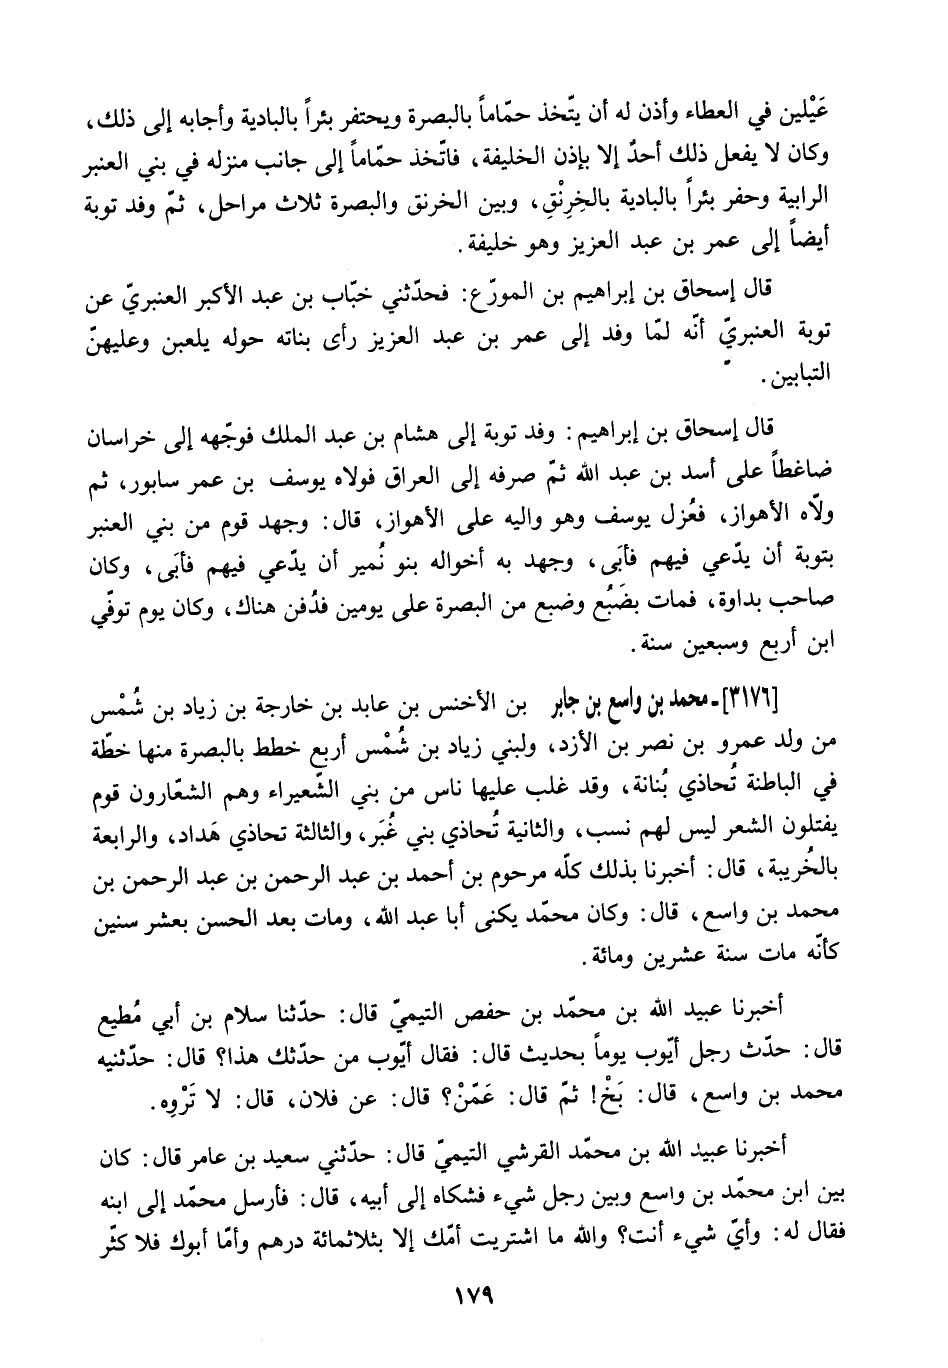 عَيْلين في العطاء وأذن له أن يتّخذ حمّاماً بالبصرة ويحتفر بئراً بالبادية وأجابه إلى ذلك،
وكان لا يفعل ذلك أحدٌ إلا بإذن الخليفة، فاتّخذ حمّاماً إلى جانب منزله في بني العنبر
الرابية وحفر بئراً بالبادية بالخِرِنْقِ، وبين الخرنق والبصرة ثلاث مراحل، ثمّ وفد توبة
أيضاً إلى عمر بن عبد العزيز وهو خليفة.
قال إسحاق بن إبراهيم بن المورّع: فحدّثني خبّاب بن عبد الأكبر العنبريّ عن
توبة العنبريّ أنّه لمّا وفد إلى عمر بن عبد العزيز رأى بناته حوله يلعبن وعليهنّ
التبابين.
قال إسحاق بن إبراهيم: وفد توبة إلى هشام بن عبد الملك فوجّهه إلى خراسان
ضاغطاً على أسد بن عبد الله ثمّ صرفه إلى العراق فولاه يوسف بن عمر سابور، ثم
ولّاه الأهواز، فعُزل يوسف وهو واليه على الأهواز، قال: وجهد قوم من بني العنبر
بتوبة أن يدّعي فيهم فأبَى، وجهد به أخواله بنو نُمير أن يدّعي فيهم فأبَى، وكان
صاحب بداوة، فمات بضَبُع وضبع من البصرة على يومين فدُفن هناك، وكان يوم توفّي
ابن أربع وسبعين سنة.
[٣١٧٦] ـ محمد بن واسع بن جابر بن الأخنس بن عابد بن خارجة بن زياد بن شُمْس
من ولد عمرو بن نصر بن الأزد، ولبني زياد بن شُمْس أربع خطط بالبصرة منها خطّة
في الباطنة تُحاذي بُنانة، وقد غلب عليها ناس من بني الشّعيراء وهم الشعّارون قوم
يفتلون الشعر ليس لهم نسب، والثانية تُحاذي بني غُبَر، والثالثة تحاذي هَداد، والرابعة
بالخُريبة، قال: أخبرنا بذلك كلّه مرحوم بن أحمد بن عبد الرحمن بن عبد الرحمن بن
محمد بن واسع، قال: وكان محمّد يكنى أبا عبد الله، ومات بعد الحسن بعشر سنين
كأنّه مات سنة عشرين ومائة.
أخبرنا عبيد الله بن محمّد بن حفص التيميّ قال: حدّثنا سلام بن أبي مُطيع
قال: حدّث رجل أيّوب يوماً بحديث قال: فقال أيّوب من حدّثك هذا؟ قال: حدّثنيه
محمد بن واسع، قال: بَخْ! ثمّ قال: عَمّنْ؟ قال: عن فلان، قال: لا تَرْوِه.
أخبرنا عبيد الله بن محمّد القرشي التيميّ قال: حدّثني سعيد بن عامر قال: كان
بين ابن محمّد بن واسع وبين رجل شيء فشكاه إلى أبيه، قال: فأرسل محمّد إلى ابنه
فقال له: وأيّ شيء أنت؟ والله ما اشتريت أمّك إلا بثلاثمائة درهم وأمّا أبوك فلا كثّر
١٧٩